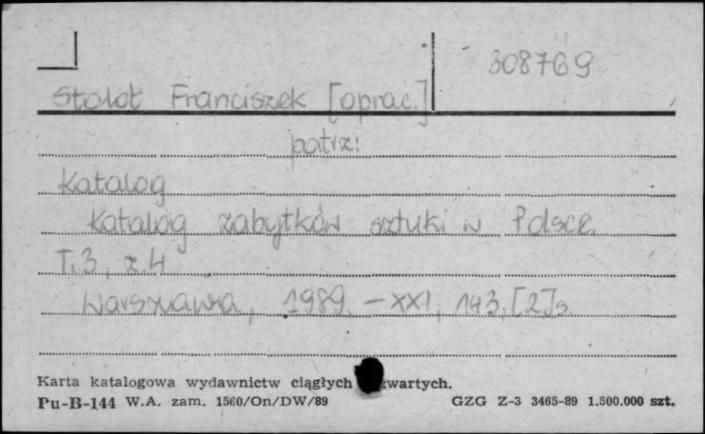 308769
Stolot Franciszek [oprac.]
patrz:
Katalog
Katalog zabytków sztuki w Polsce.
T.3, z.4
Warszawa, 1989. - XXI, 143, [2]s.
Karta katalogowa wydawnictw ciągłych wartych.
Pu-B-144 W.A. zam. 1560/On/DW/89 GZG Z-3 3465-89 1.500.000 szt.